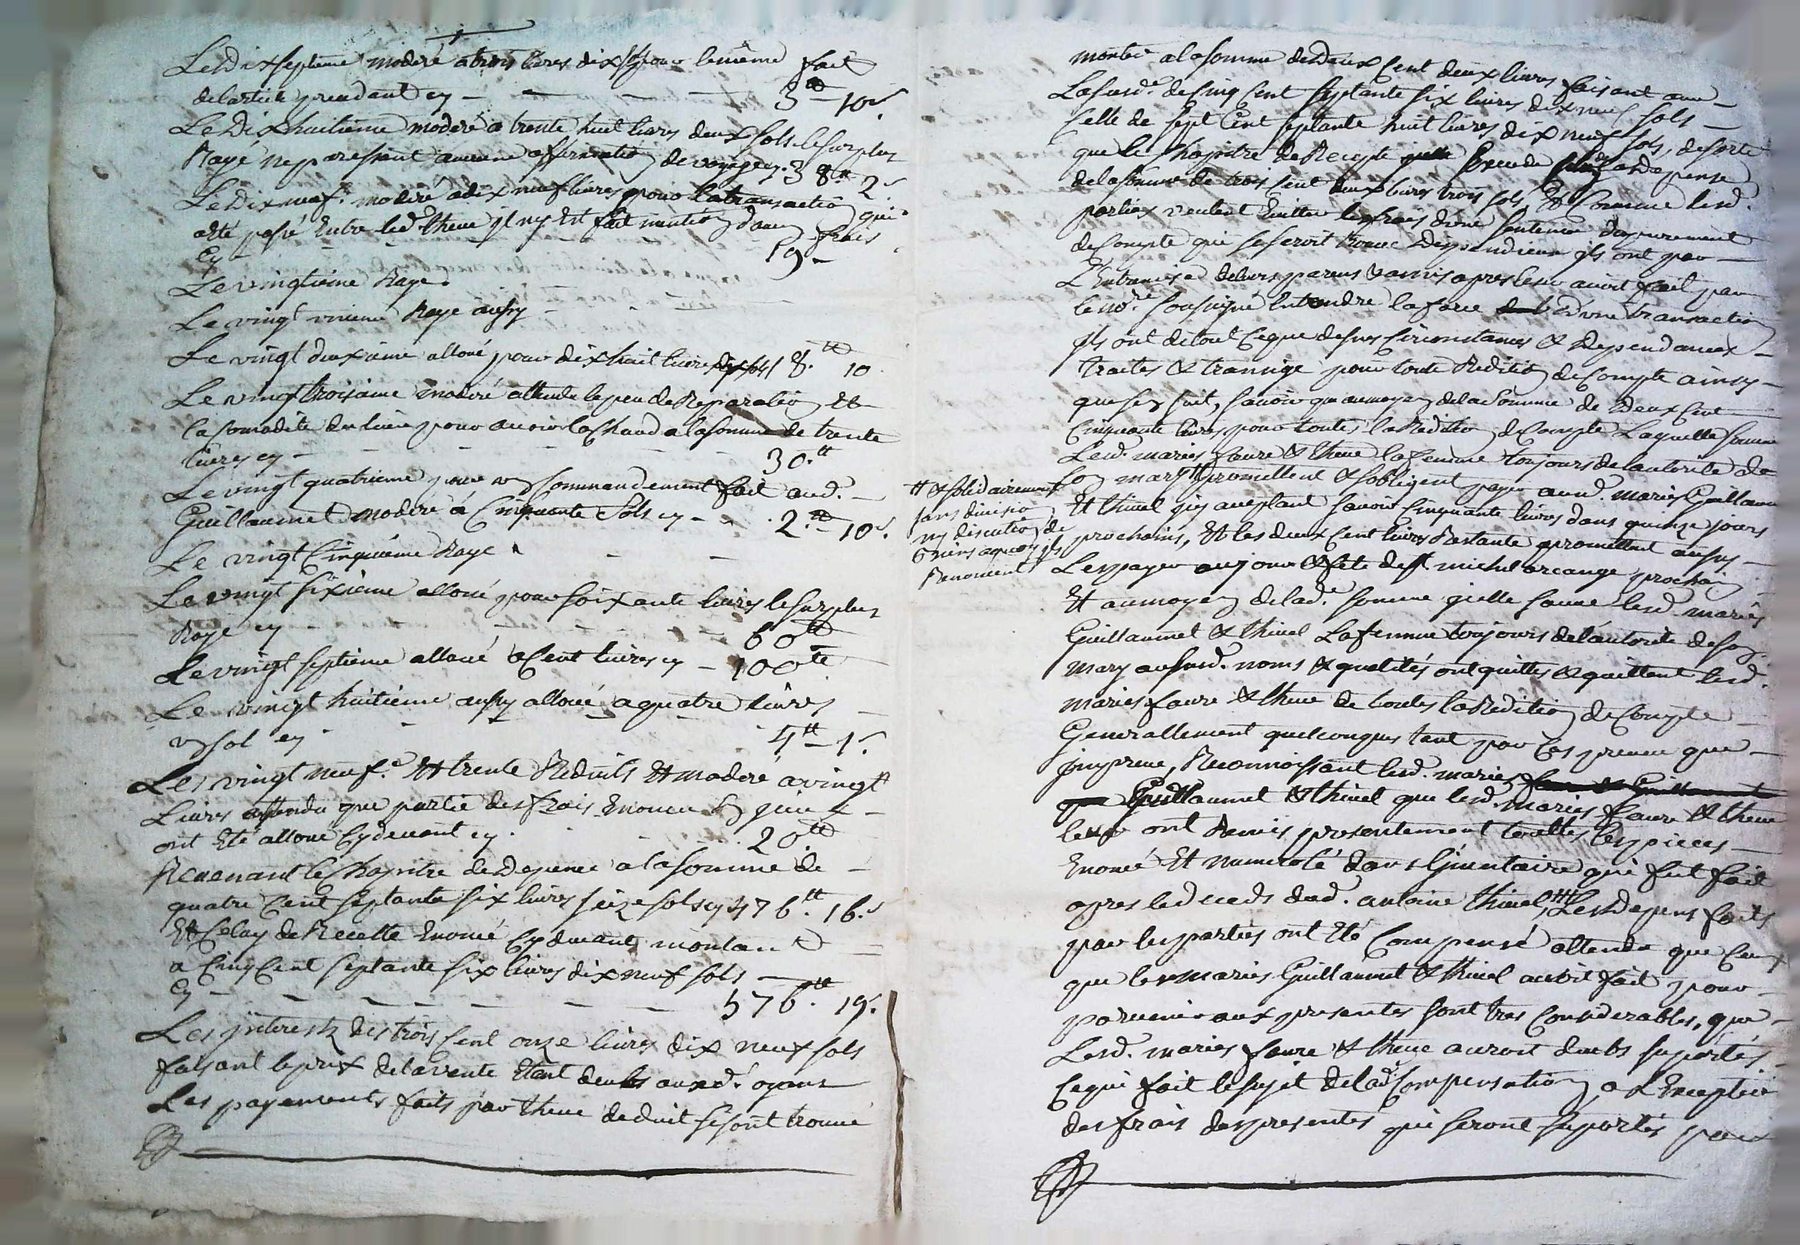 Le dixseptieme moderé a trois livres dix s pour le même fait
de la [...] prendant cy - 3tt 10s
Le Dixhuitieme moderé a trente huit livres deux sols le surplus
Rayé ne paressant aucune affirmation de voyage cy. 38tt 2s
Le Dix neuf.e moderé a dix neuf livres pour la transaction qui
a été passé Entre led Theue il ny Est fait mention d'aucun frais
Cy - 19 -
Le vingtieme Raye.
Le vingt unieme Raye aussy
Le vingt deuxieme alloué pour dix huit livres dix sols 18.tt 10
Le vingt troisieme moderé attendu le peu de Reparation Et
la comodité du lieu pour avoir la chaud a la somme de trente
livres cy - 30.tt
Le vingt quatrieme pour un commandement fait aud.
Guillaumet moderé à Cinquante Sols cy - 2.tt 10s.
Le vingt Cinquieme Raye
Le vingt sixieme alloué pour soixante livres le surplus
Raye cy - 60tt
Le vingt septieme alloué a Cent livres cy - 100tt
Le vingt huitieme aussy alloué a quatre livres
un sol cy - 4tt 1s.
Les vingt neuf.e Et trente Reduits Et moderé a vingt
Livres attendu que partie des frais Enoncé
ont Eté alloué Cydevant cy. 20tt
Revenant le Chapitre de Depence a la somme de
quatre Cent septante six livres seize sols cy 476.tt 16.s
Et Celuy de Recette Enoncé Cydevant montant
a Cinq Cent septante six livres dix neuf sols
Cy - 576.tt 19s.
Les interets des trois Cent onze livres dix neuf sols
faisant le prix de la vente Etant deubs auxd. oyans
Les payements faits par Theue deduit se sont trouvé
monté a la somme de Deux Cent deux livres faisant avec
La susd.e de Cinq Cent septante six livres dix neuf sols
Celle de Sept Cent septante huit livres dix neuf sols, de sorte
que le Chapitre de Recepte Excede la depense
de la somme de trois Cent deux livres trois sols, Et Comme lesd.
parties veulent Eviter les frais d'une sentence d'apurement
de Compte qui se seroit trouvé Dispendieux ils ont par
L'Entremise de leurs parens & amis apres leur avoir fait par
le no.re soussigné Entendre la force d'une transaction
ils ont de tout Ce que dessus Circonstances & Dependances
traités & transigé pour toute Reddition de Compte ainsy
que s'en suit, savoir qu'au moyen de la somme de Deux Cent
Cinquante livres pour toutes la Reddition de Compte Laquelle somme
Lesd. mariés faure & theue la femme toujours de l'autorité de
son mary tt promettent & s'obligent payer auxd. mariés Guillaumet
tt & solidairement
sans division
ny discution de
biens a quoy ils
Renoncent
Et thinel icy acceptant savoir Cinquante livres dans quinze jours
prochains, Et les deux Cent livres Restante promettent aussy
Les payer au jour & fete de St michel arcange prochain
Et au moyen de lad.e somme quelle somme lesd mariés
Guillaumet & thinel La femme toujours de l'autorité de son
mary aususd. noms & qualités ont quittes & quittent lesd.
mariés faure & theue de toutes la Reddition de Compte
Generallement quelconques tant par Ces presens que
Reconnoissant lesd. mariés
Guillaumet & thinel que lesd. mariés faure & theue
leur ont Remis presentement touttes les pieces
Enoncé Et numeroté dans l'inventaire qui fut fait
apres le deceds dud. antoine thinel, Les depens faits
par les parties ont Eté Compensé attendu que Ceux
que les mariés Guillaumet & thinel auroit fait pour
parvenir aux presentes sont tres Considerables, que
Lesd. mariés faure & theue auroit deubs suportés
Ce qui fait le sujet de lad. Compensation, a L'Exception
des frais des presentes qui seront suportés par